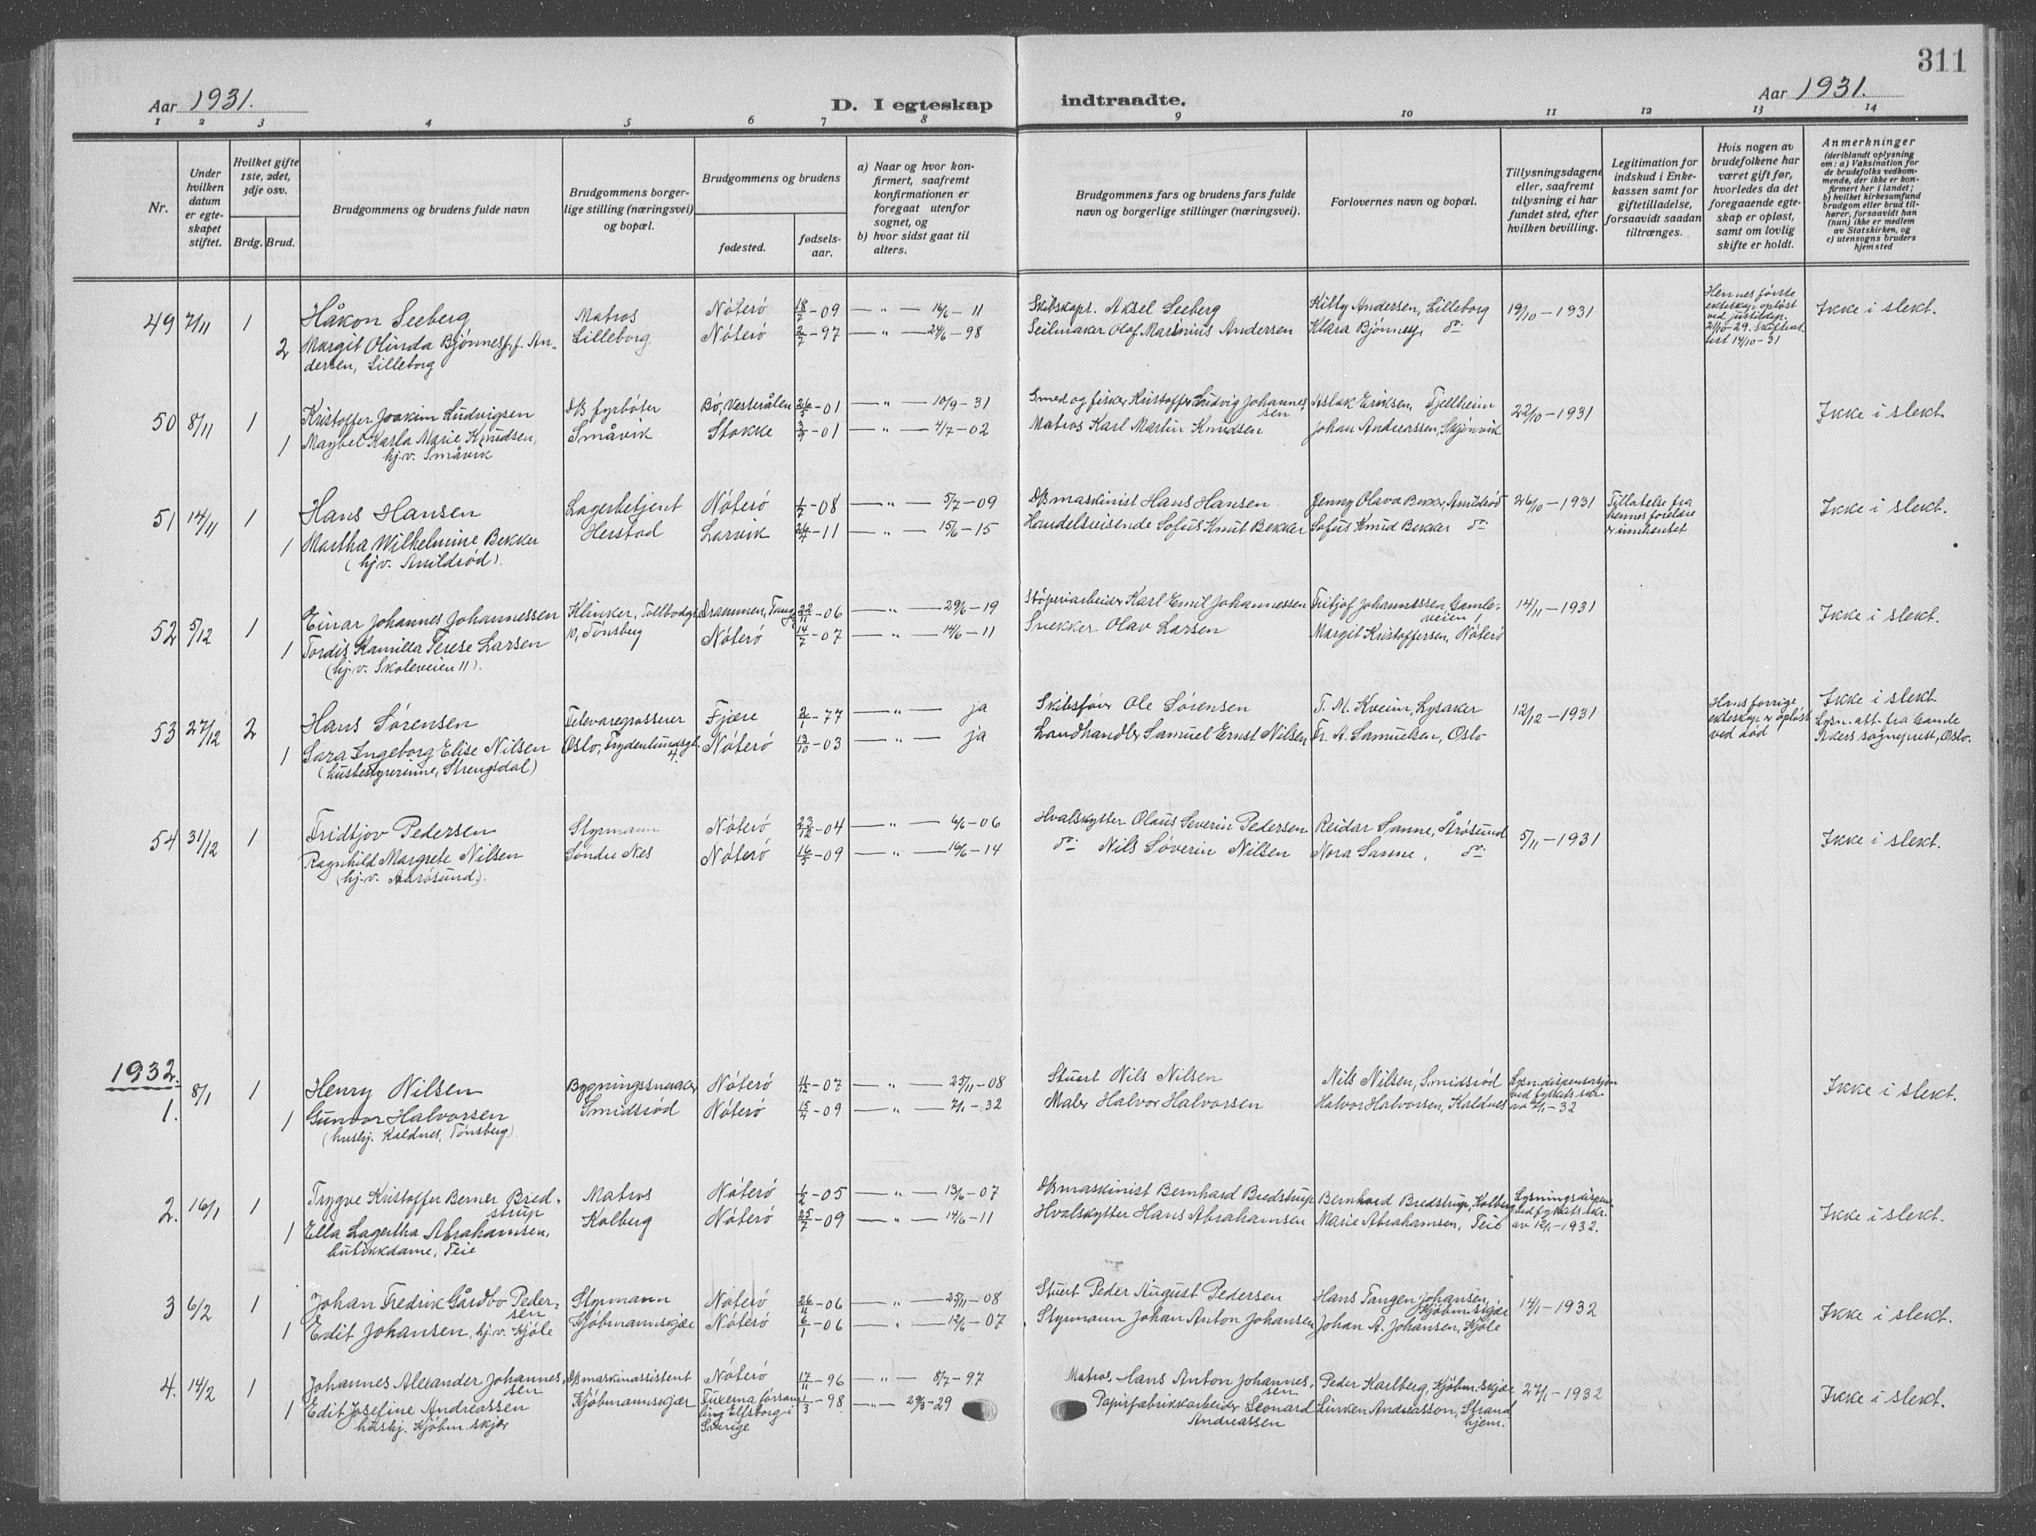 311
Aar 1931.
D. I egteskap indtraadte.
Aar 1931.
1 2 3 4 5 6 7 8 9 10 11 12 13 14
Nr.
Under hvilken datum er egteskapet stiftet.
Hvilket gifte 1ste, 2det, 3dje osv.
Brdg. Brud.
Brudgommens og brudens fulde navn
Brudgommens borgerlige stilling (næringsvei) og bopæl.
Brudgommens og brudens
fødested.
fødselsaar.
a) Naar og hvor konfirmert, saafremt konfirmationen er foregaat utenfor sognet, og
b) hvor sidst gaat til alters.
Brudgommens fars og brudens fars fulde navn og borgerlige stillinger (næringsvei).
Forlovernes navn og bopæl.
Tillysningsdagene eller, saafremt tillysning ei har fundet sted, efter hvilken bevilling.
Legitimation for indskud i Enkekassen samt for giftetilladelse, forsaavidt saadan tiltrænges.
Hvis nogen av brudefolkene har været gift før, hvorledes da det foregaaende egteskap er opløst, samt om lovlig skifte er holdt.
Anmerkninger
(deriblandt oplysning om: a) Vaksination for de brudefolks vedkommende, der ikke er konfirmert her i landet; b) hvilket kirkesamfund brudgom eller brud tilhører, forsaavidt han (hun) ikke er medlem av Statskirken, og c) utensogns bruders hjemsted
49 7/11 1 Håkon Seeberg Matros Nøterø 18/7-09 — „ — 16/6-11 Skibskapt. Aksel Seeberg Kitty Andersen, Lilleborg 19/10-1931 Ikke i slekt.
2 Margit Olinda Bjønnes f. An- Lilleborg Nøterø 2/7-97 — „ — 24/6-98 Seilmaker Olaf Marinius Andersen Klara Bjønnes, do
dersen, Lilleborg
Hennes første ekteskap opløst ved
50 8/11 1 Kristoffer Joakim Ludvigsen D/S fyrbøter Bø, Vesterålen 26/5-01 — „ — 10/9-31 Smed og fisker Kristoffer Ludvig Johannessen Aslak Eriksen, Fjellheim 22/10-1931 Ikke i slekt.
1 Maybel Karla Marie Knudsen, Småvik Stokke 3/9-01 — „ — 4/7-02 Matros Karl Martin Knudsen Johan Andreassen, Skjenvik
hj.v. Småvik
51 14/11 1 Hans Hansen Lagerbetjent Nøterø 1/7-08 — „ — 5/7-09 D/S maskinist Hans Hansen Jenny Olava Bekker, Anildsrød 26/10-1931 Tillatelse fra hennes foreldre er innhentet Ikke i slekt.
1 Martha Wilhelmine Bekker Herstad Larvik 26/4-11 — „ — 15/6-15 Handelsreisende Sofus Knut Bekker Sofus Knud Bekker do
(hj.v. Anildsrød).
52 5/12 1 Einar Johannes Johannessen Klinker, Tollbodgt. Drammen, 22/11-06 — „ — 29/6-19 Støperiarbeider Karl Emil Johannessen Fritjof Johannessen, Gamleveien, 14/11-1931 Ikke i slekt.
1 Tordis Kamilla Terese Larsen 10, Tønsberg Nøterø 14/7-07 — „ — 14/6-11 Snekker Olav Larsen Margit Kristoffersen, Nøterø
(hj.v. Skoleveien 11).
53 27/12 2 Hans Sørensen Fetevaregrosserer Fjære 2/1-77 — „ — ja Skibsfør Ole Sørensen T. M. Kveim, Lysaker 12/12-1931 Hans forrige ekteskap er opløst ved død Ikke i slekt
1 Sara Ingeborg Elise Nilsen Oslo, Frydenlundsgt. 4. Nøterø 13/10-03 — „ — ja Landhandler Samuel Ernst Nilsen Fr. A. Samuelsen, Oslo Lysn. att. fra Gamle Akers sogneprest, Oslo.
(husbestyrerinne, Strengsdal)
54 31/12 1 Fridtjov Pedersen Styrmann Nøterø 23/12-04 — „ — 6/6-06 Hvalskytter Olaus Severin Pedersen Reidar Sanne, Årøsund 5/11-1931 Ikke i slekt.
Ragnhild Margrete Nilsen Søndre Nes Nøterø 16/5-09 — „ — 16/6-14 do Nils Søverin Nilsen Nora Sanne, do
(hj.v. Aarøsund).
1932.
1. 8/1 1 Henry Nilsen Bygningssnekker Nøterø 4/12-07 — „ — 25/11-08 Stuert Nils Nilsen Nils Nilsen, Smidsrød Lysn.dispensasjon ved fylkets skr. av 7/1-32 Ikke i slekt.
1 Gunvor Halvorsen Smidsrød Nøterø 15/4-09 — „ — 7/1-32 Maler Halvor Halvorsen Halvor Halvorsen, Kaldnes
(hushj. Kaldnes, Tønsberg).
2. 16/1 1 Trygve Kristoffer Berner Bredstrup Matros Nøterø 1/2-05 — „ — 13/6-07 D/S maskinist Bernhard Bredstrup Bernhard Bredstrup, Kolberg Lysningsdispens. ved fylkets skr. av 12/1-1932. Ikke i slekt.
1 Ella Lagertha Abrahamsen, Kolberg Nøterø 25/7-09 — „ — 14/6-11 Hvalskytter Hans Abrahamsen Marie Abrahamsen, Teie
butikkdame, Teie
3 6/2 1 Johan Fredrik Gårdbo Pedersen Styrmann Nøterø 26/11-06 — „ — 25/11-08 Stuert Peder August Pedersen Hans Tangen Johansen, Kjøbm.skjær 14/1-1932 Ikke i slekt.
1 Edit Johansen, hj.v. Kjøle Kjøbmannskjær Nøterø 6/1-06 — „ — 12/6-07 Styrmann Johan Anton Johansen Johan A. Johansen, Kjøle
4. 14/2 1 Johannes Alexander Johannessen D/S maskinassistent Nøterø 17/11-96 — „ — 8/7-97 Matros Hans Anton Johannessen Peder Karlberg, Kjøbm.skjær 27/1-1932 Ikke i slekt.
1 Edit Josefine Andreassen Kjøbmannsskjær Tuxema församling Elfsborg i Sverige 1/3-98 — „ — 29/3-29 Papirfabrikkarbeider Leonard Andreassen Linken Andreasson, Strandhjem.
hushj. Kjøbm.skjær